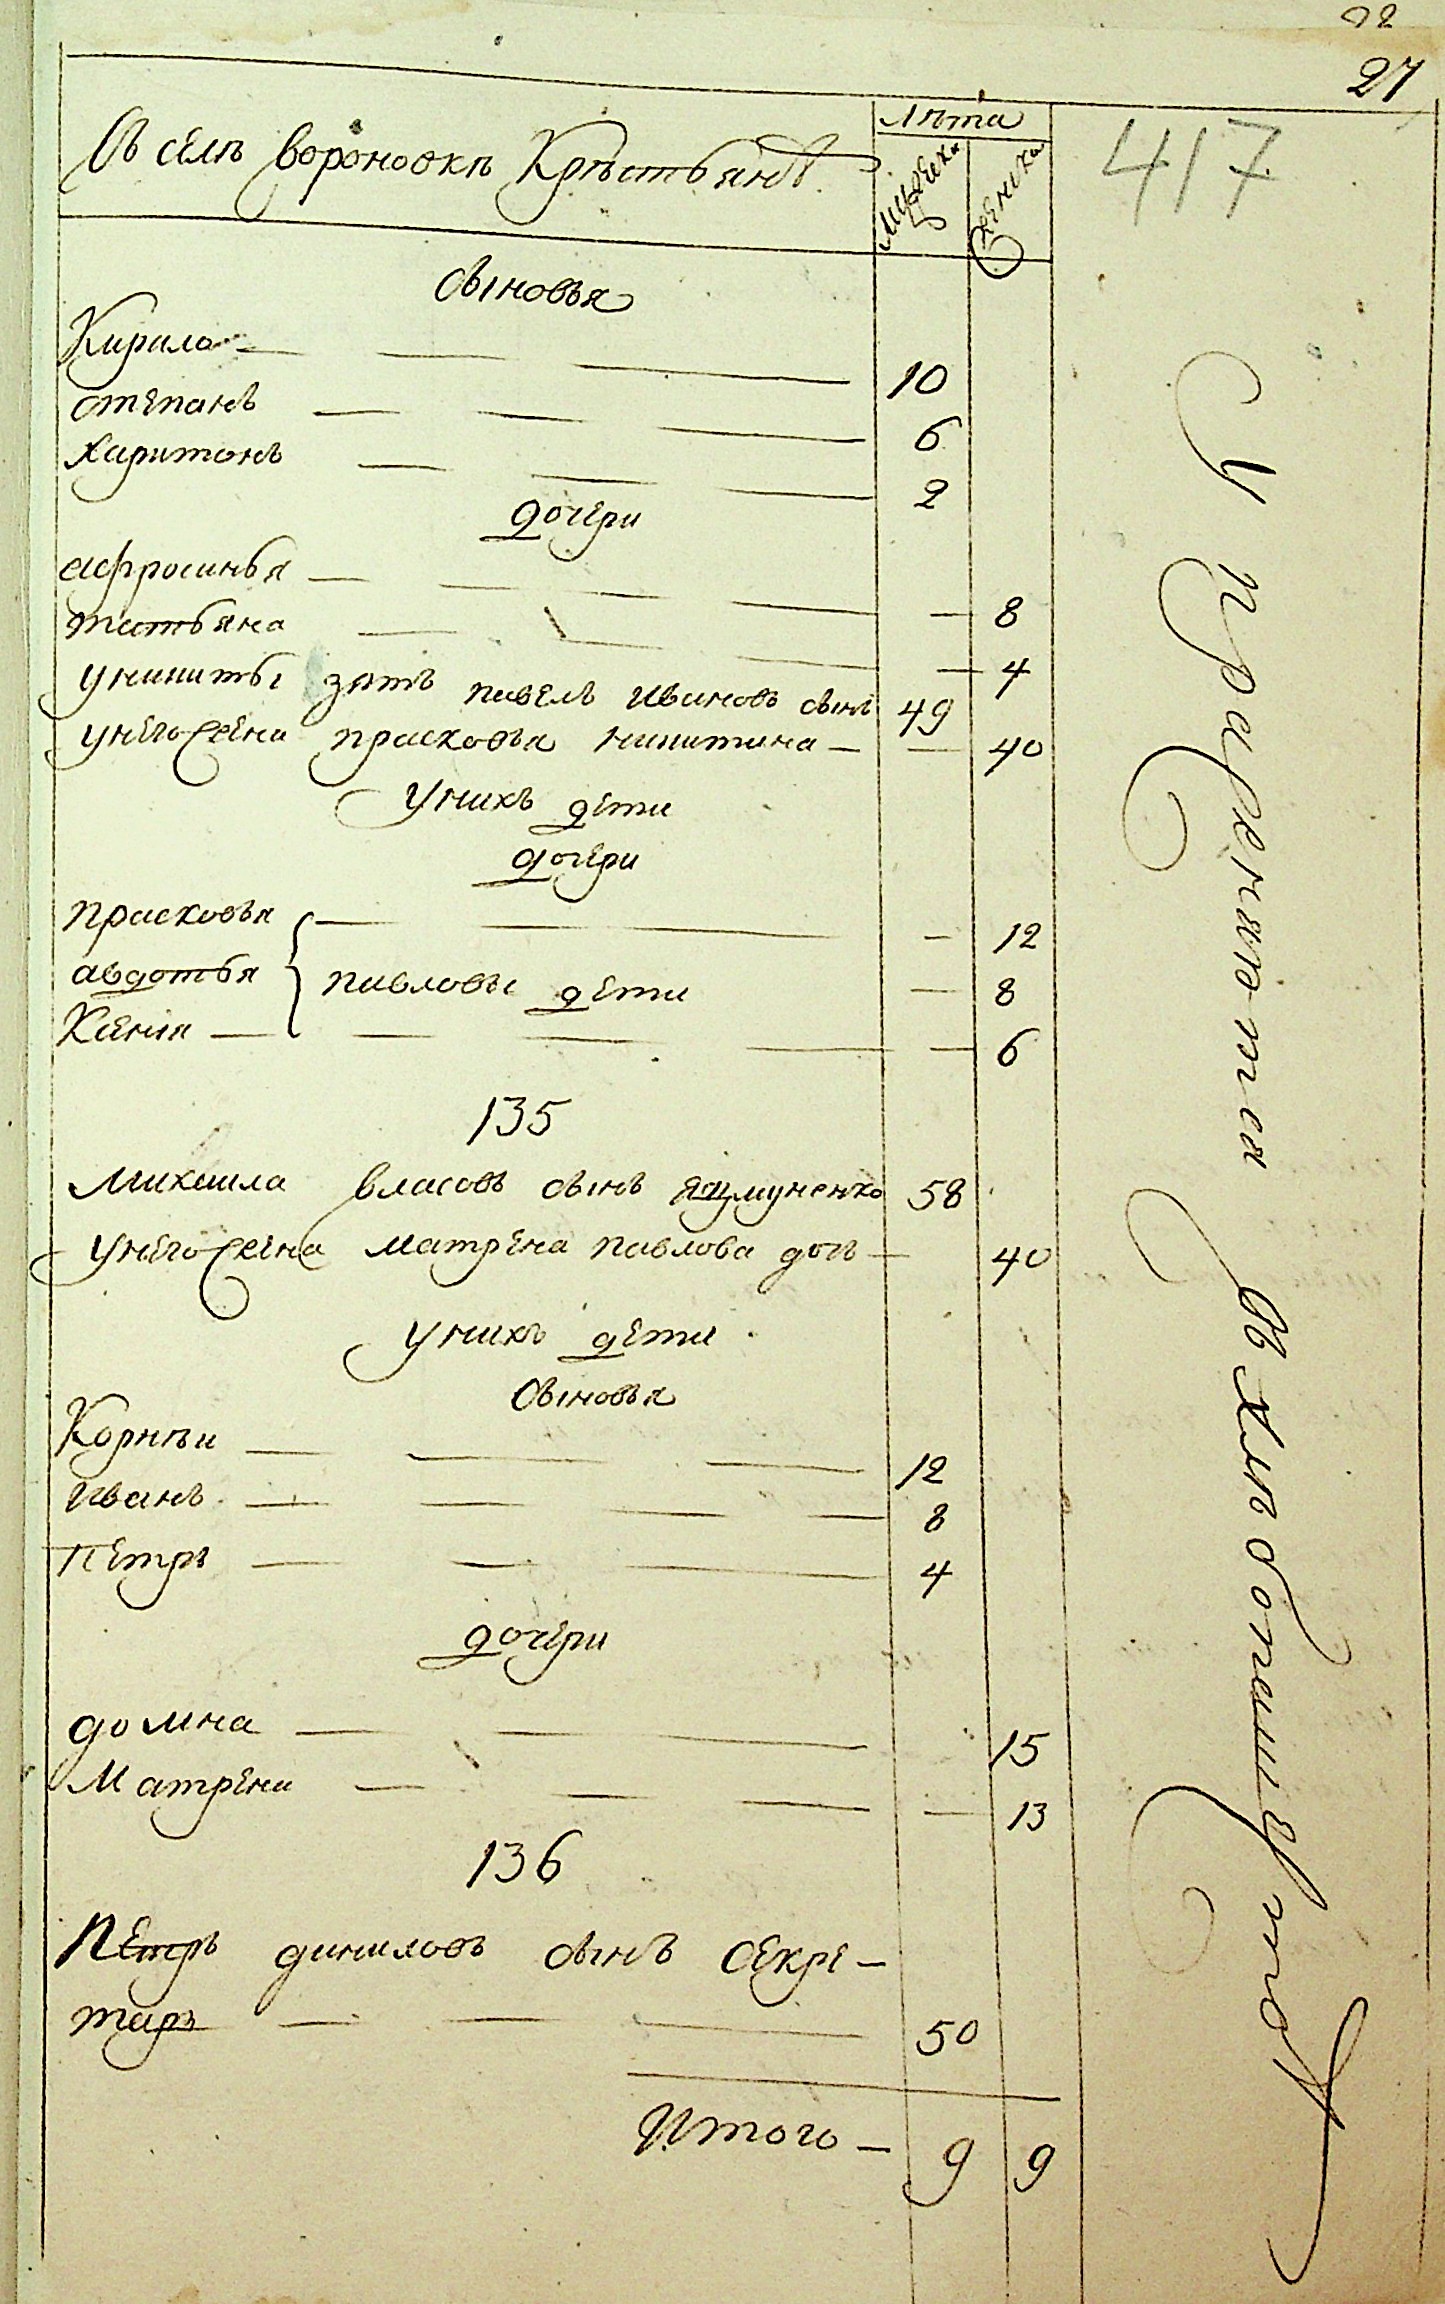 22
27
417
Лѣта
Въ селѣ Вороновкѣ Крѣстьянъ
мужеска
женска
сыновья
Кирила 10
степанъ 6
харитонъ 2
дочери
афросинья 8
татьяна 4
у никиты зять павелъ Ивановъ сынъ 49
у него жена прасковья никитина 40
у нихъ дети
дочери
прасковья 12
авдотья павловы дети 8
Ксенія 6
135
Михаила власовъ сынъ 58
у него жена матрена павлова дочь 40
у нихъ дети
сыновья
Корнѣи 12
Иванъ 8
петръ 4
дочери
домна 15
Матрена 13
136
Петръ даниловъ сынъ секре-
тарь 50
Итого 9 9